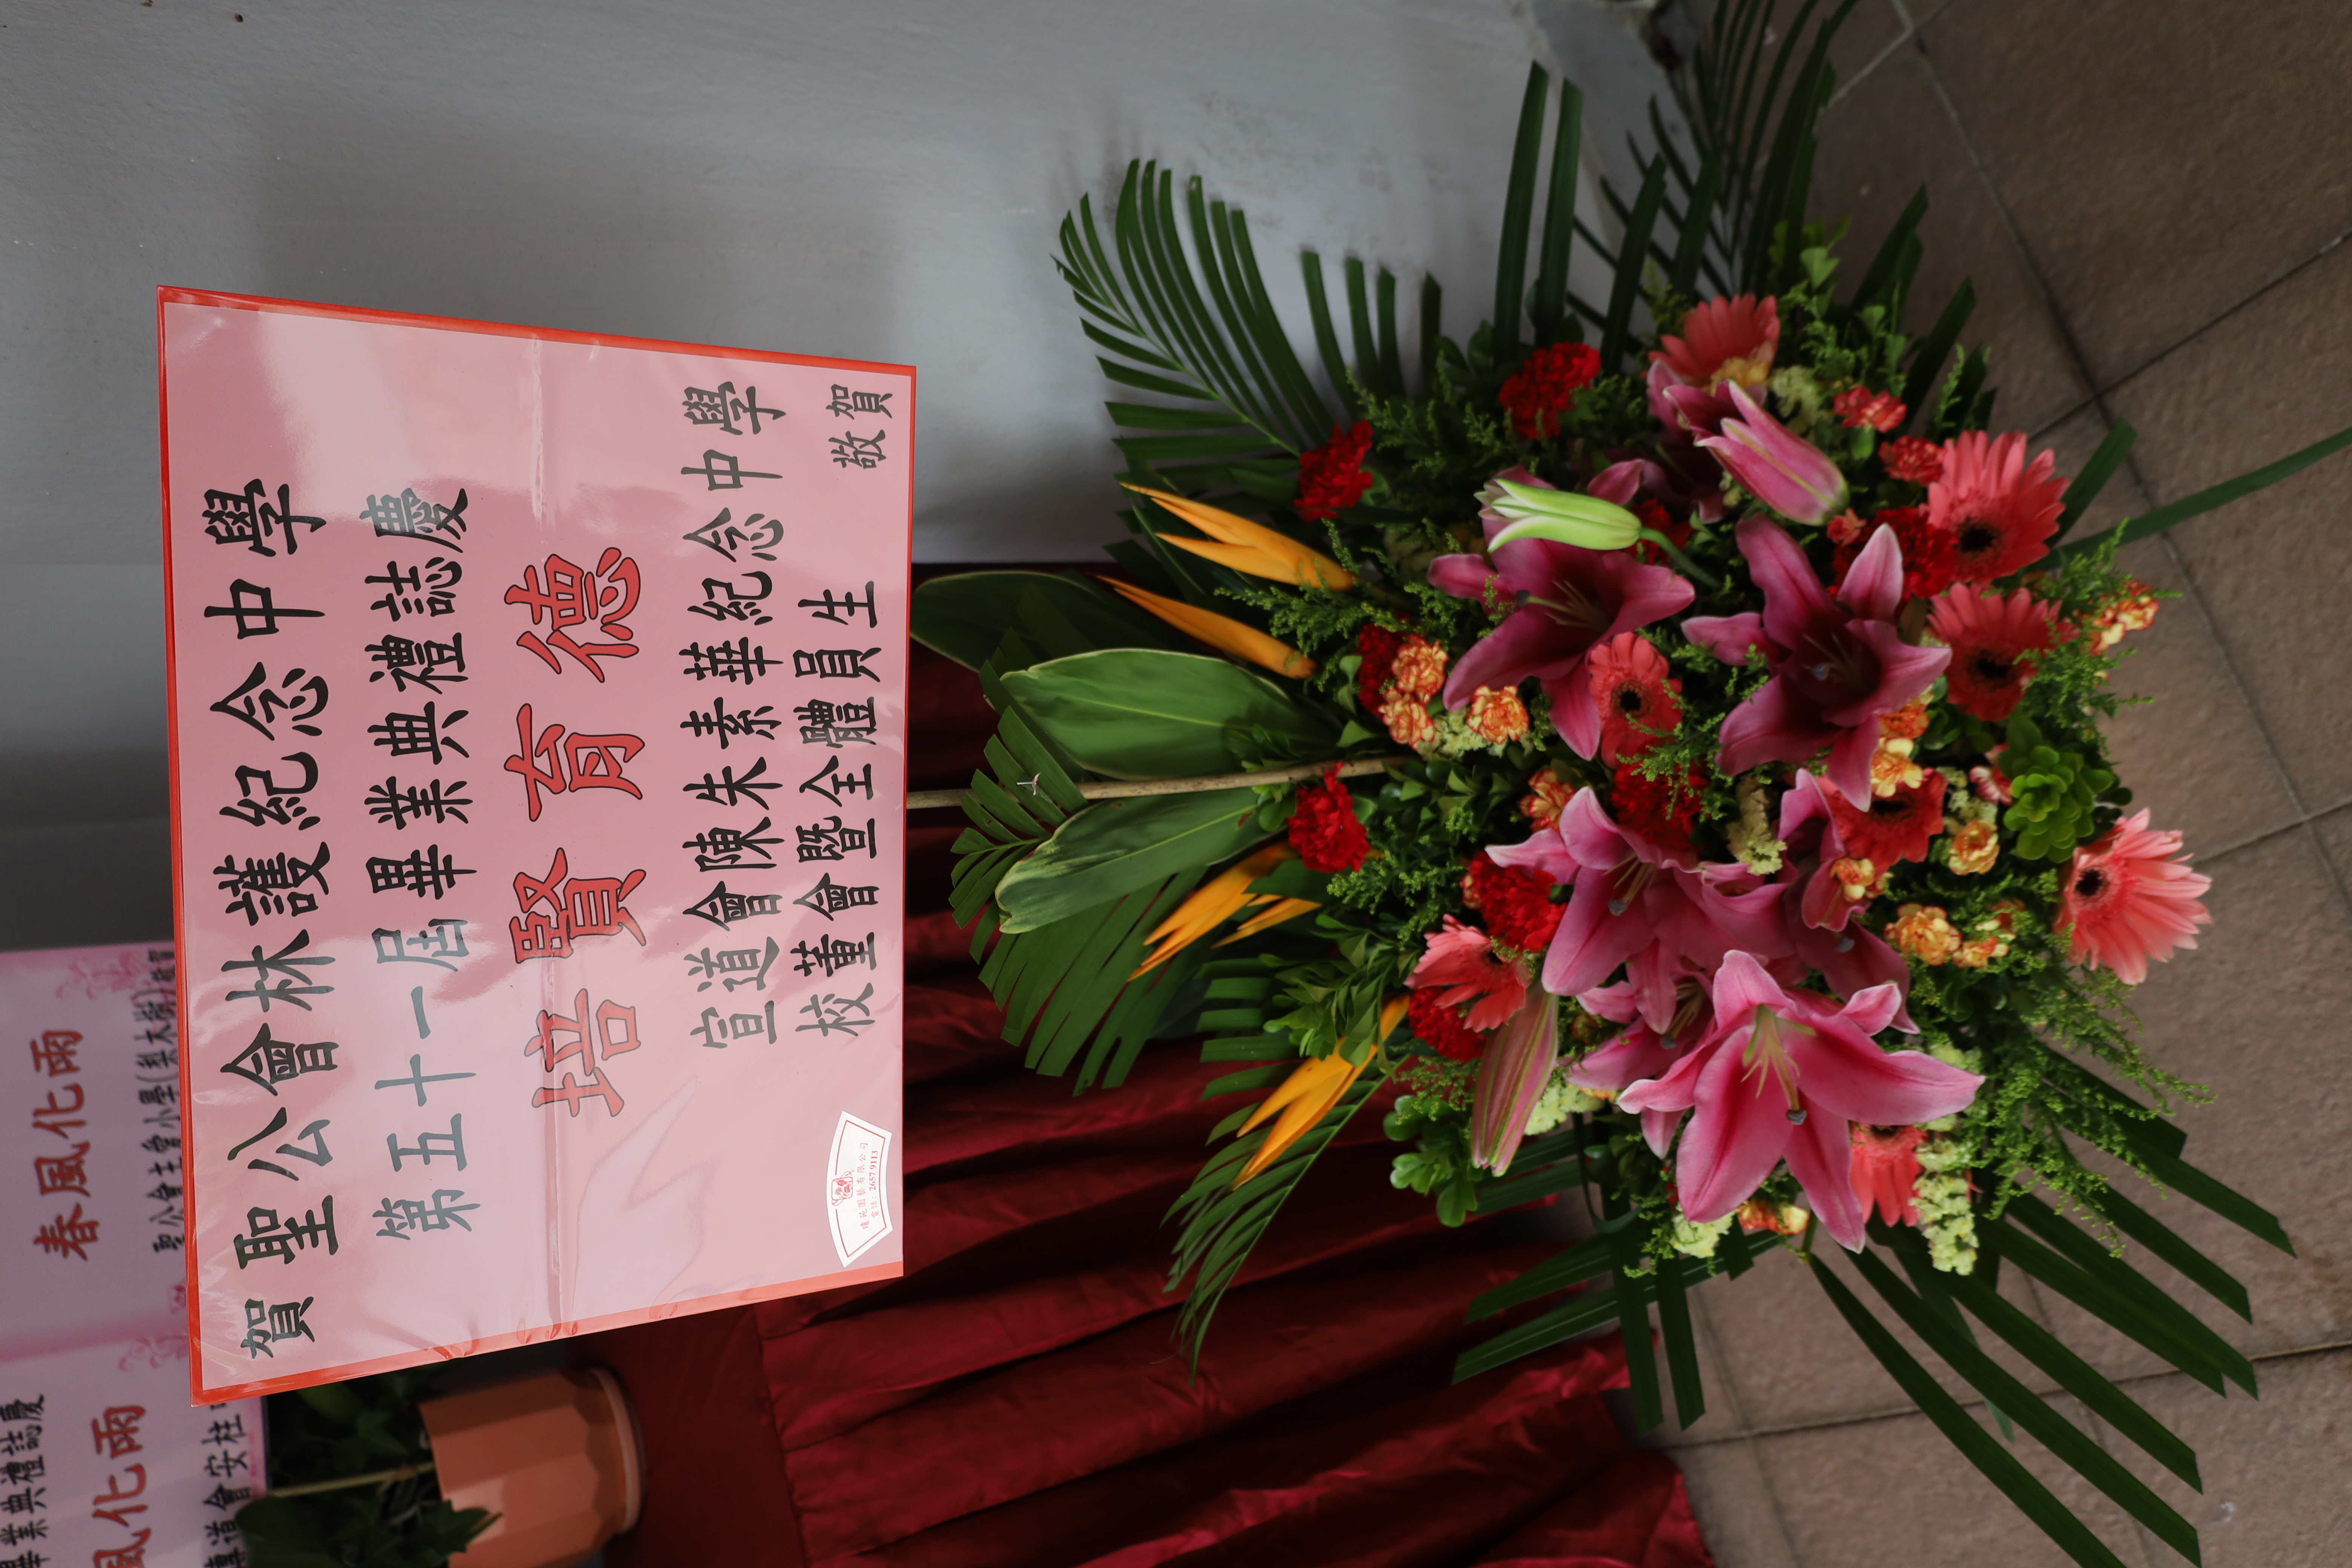 賀 聖公會林護紀念中學
第五十一屆畢業典禮誌慶
培賢育德
宣道會陳朱素華紀念中學
校董會暨全體員生
敬賀
電話: 2657 9113
春風化雨
聖公會主愛小學(梨木樹)
畢業典禮誌慶
風化雨
會安柱